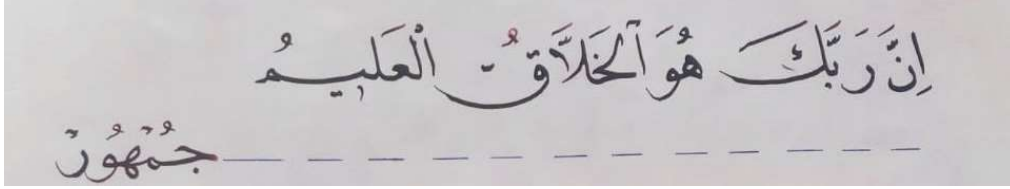 اِنَّ رَبَّكَ هُوَ ٱلْخَلَّاقُ الْعَلِيمُ
جُمْهُورٌ